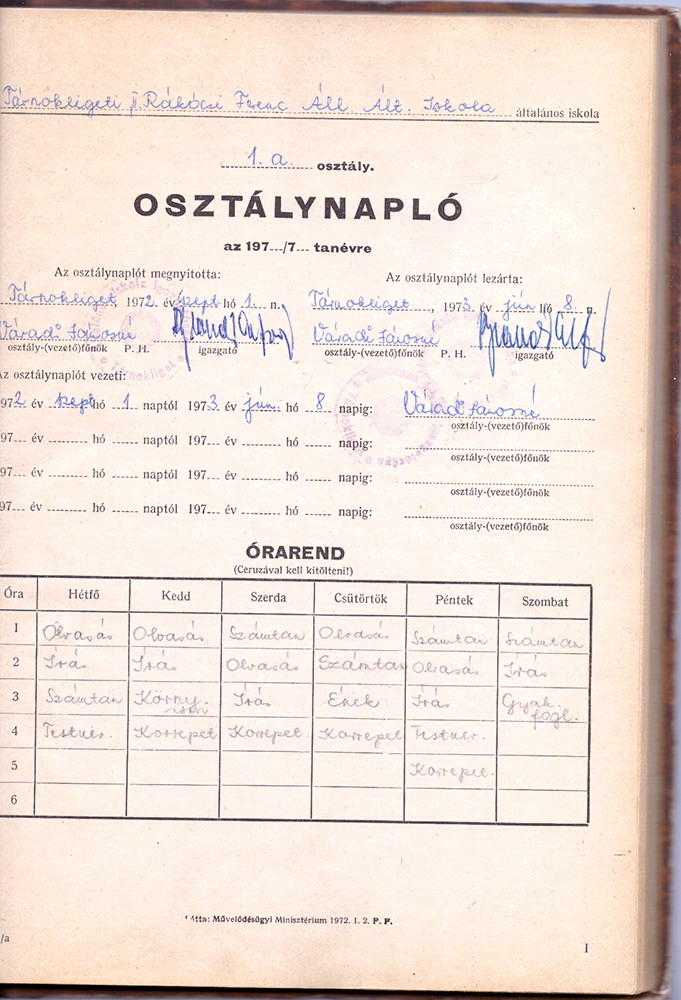 Tárnokligeti II. Rákóczi Ferenc Áll. Ált. Iskola általános iskola
1. a. osztály.
OSZTÁLYNAPLÓ
az 197.../7... tanévre
Az osztálynaplót megnyitotta: Az osztálynaplót lezárta:
Tárnokliget, 1972. év szept hó 1. n. Tárnokliget, 1973. év jún hó 8. n.
Váradi Jánosné Váradi Jánosné
osztály-(vezető)főnök P. H. igazgató osztály-(vezető)főnök P. H. igazgató
Az osztálynaplót vezeti:
972 év szept hó 1 naptól 1973 év jún. hó 8 napig: Váradi Jánosné
osztály-(vezető)főnök
97... év ... hó ... naptól 197... év ... hó ... napig:
osztály-(vezető)főnök
97... év ... hó ... naptól 197... év ... hó ... napig:
osztály-(vezető)főnök
97... év ... hó ... naptól 197... év ... hó ... napig:
osztály-(vezető)főnök
ÓRAREND
(Ceruzával kell kitölteni!)
Óra Hétfő Kedd Szerda Csütörtök Péntek Szombat
1 Olvasás Olvasás Számtan Olvasás Számtan Számtan
2 Írás Írás Olvasás Számtan Olvasás Írás
3 Számtan Körny. ism Írás Ének Írás Gyak. fogl.
4 Testnev. Korrepet Korrepet. Korrepet Testnev.
5 Korrepet.
6
Művelődésügyi Minisztérium 1972. I. 2. P. F.
/a 1